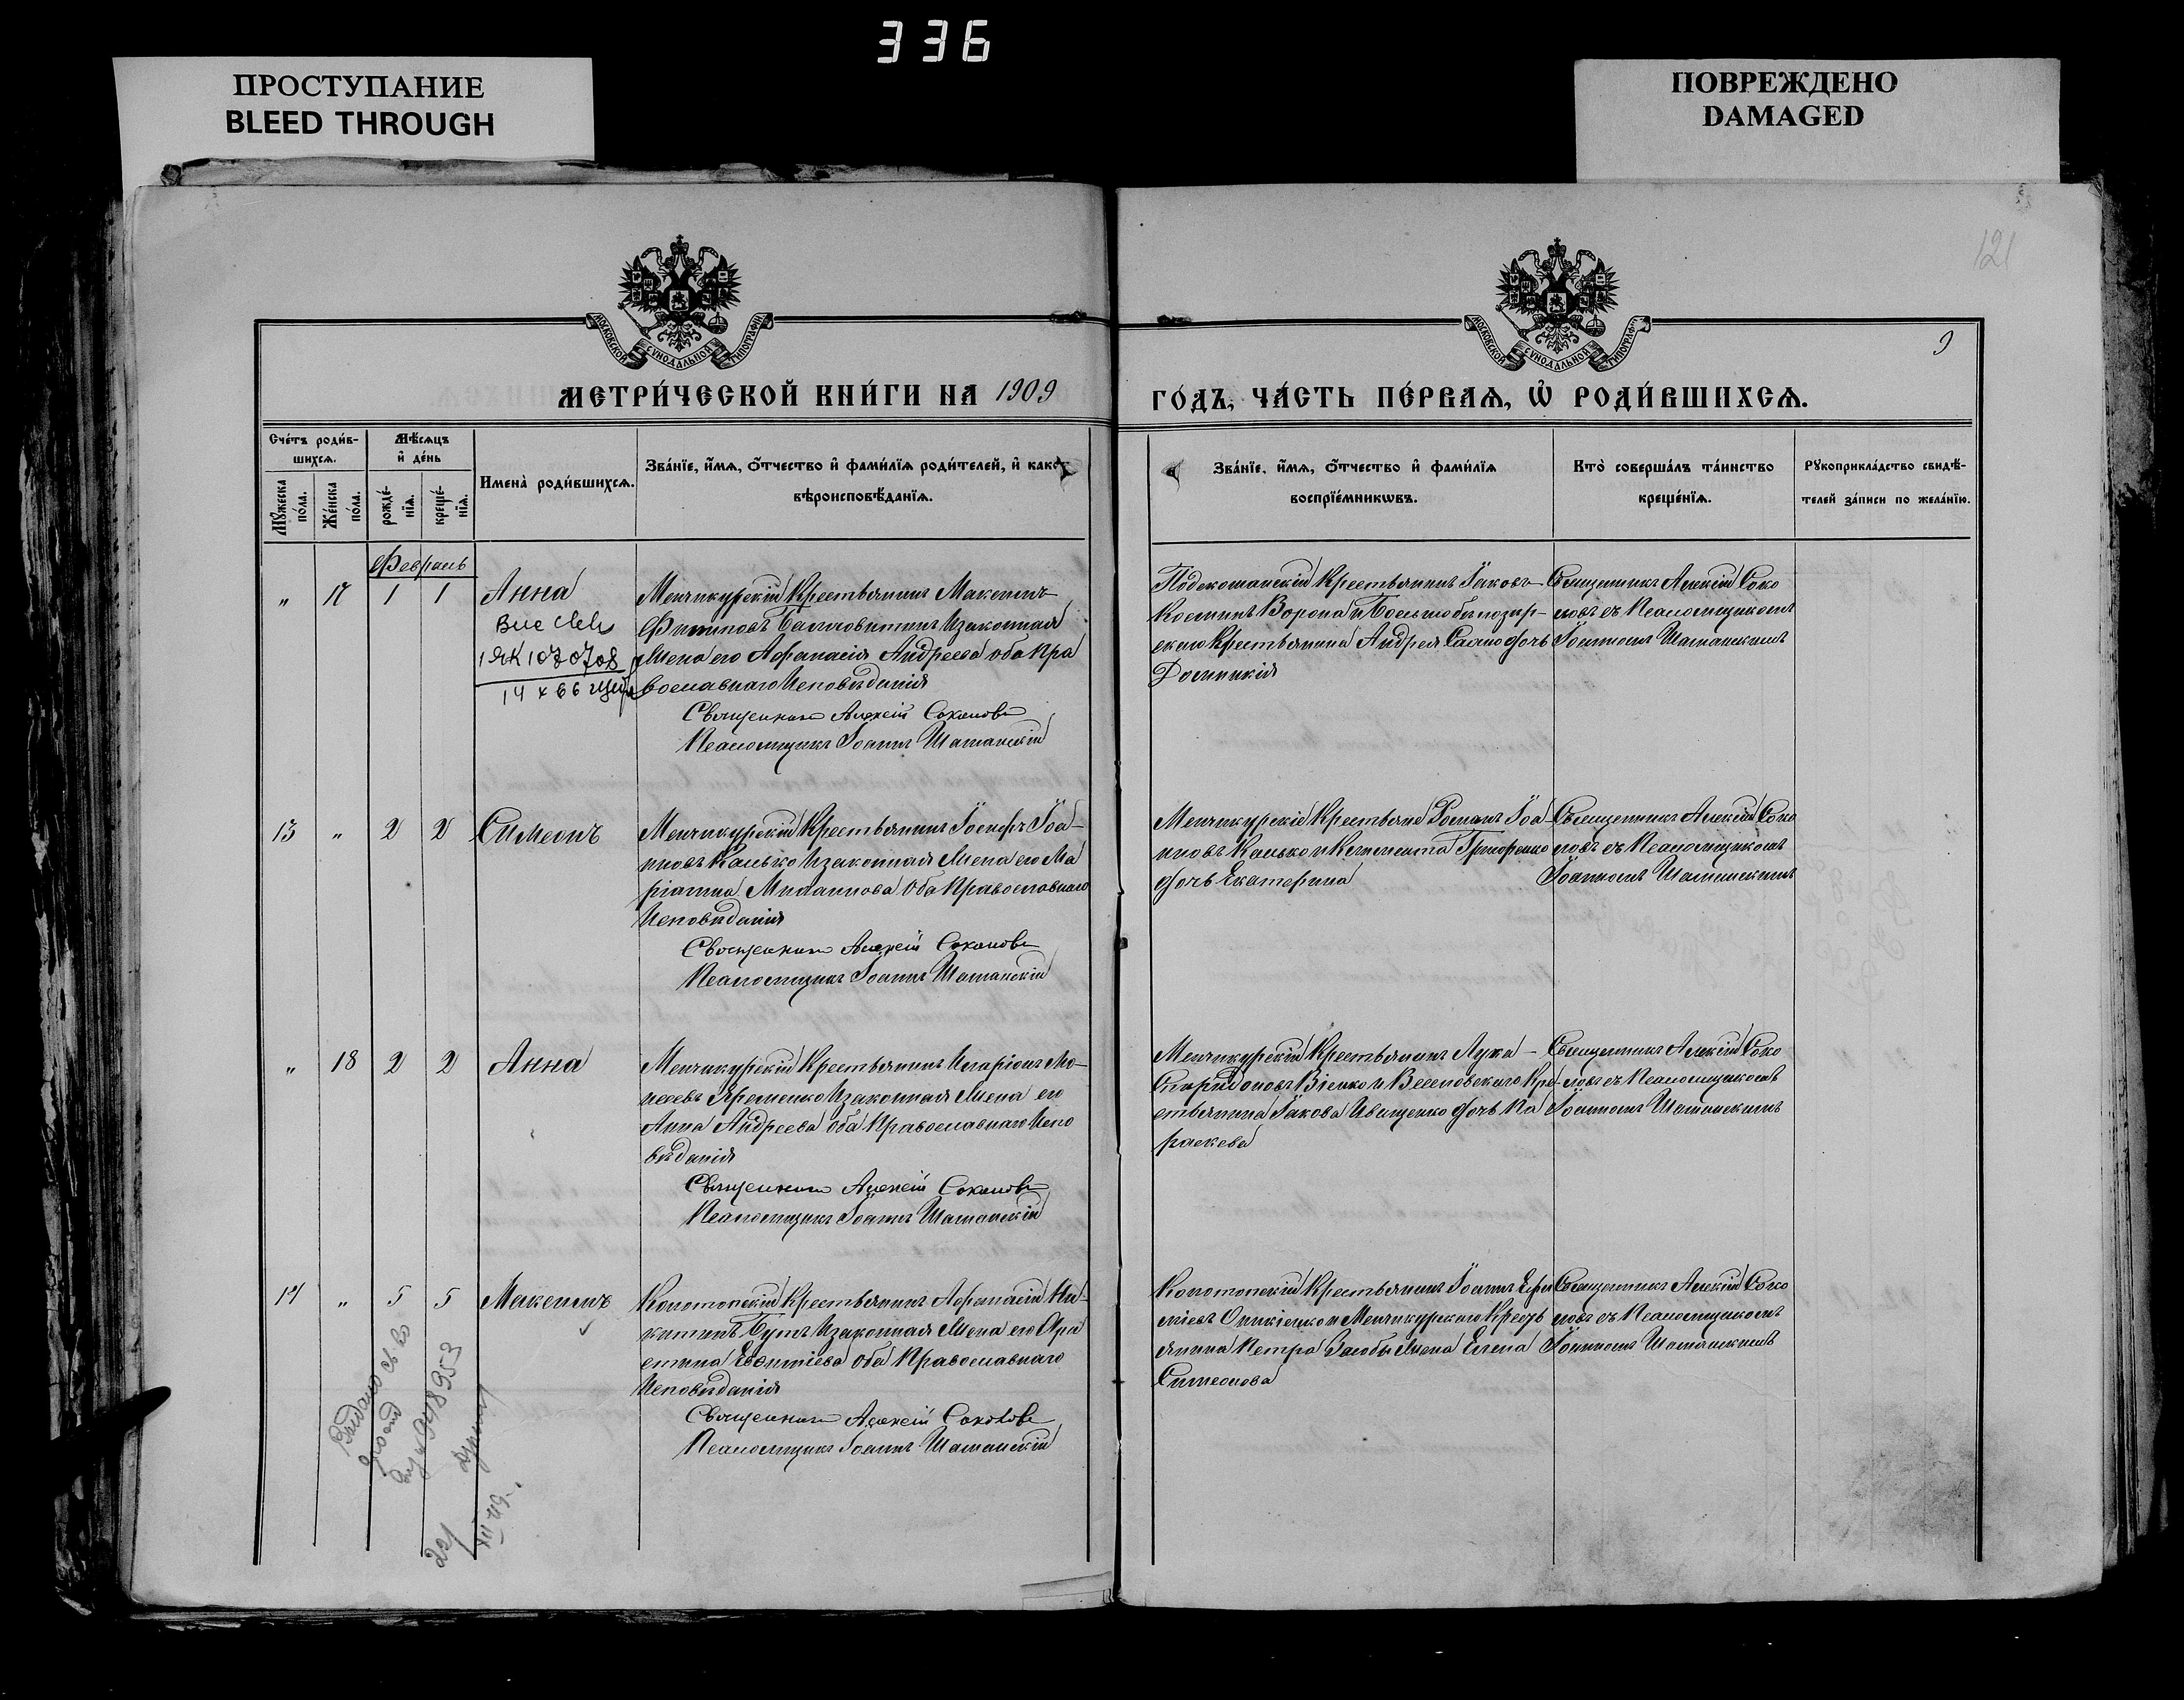 336
ПРОСТУПАНИЕ
BLEED THROUGH
ПОВРЕЖДЕНО
DAMAGED
121
9
МОСКОВСКОЙ СѴНОДАЛЬНОЙ ТИПОГРАФІИ
МОСКОВСКОЙ СѴНОДАЛЬНОЙ ТИПОГРАФІИ
МЕТРИ́ЧЕСКОЙ КНИ́ГИ НА 1909
ГО́ДЪ, ЧА́СТЬ ПЕ́РВАѦ, Ѡ РОДИ́ВШИХСѦ.
Сче́тъ роди́в-
шихсѧ.
Мꙋ́жеска по́ла.
Же́нска по́ла.
Мѣ́сѧцъ
и҆ де́нь
рожде́-
нїѧ.
креще́-
нїѧ.
Имена̀ роди́вшихсѧ.
Зва́нїе, и҆́мѧ, ѻ҆́тчество и҆ фами́лїѧ роди́телей, и҆ како́г
вѣроисповѣ́данїѧ.
Зва́нїе, и҆́мѧ, ѻ҆́тчество и҆ фами́лїѧ
воспрїе́мникѡвъ.
Кто̀ соверша́лъ та́инство
креще́нїѧ.
Рꙋкоприкла́дство свидѣ́-
телей за́писи по жела́нїю.
Февраль
" 17 1 1 Анна
1 ЯК 107078
14 х 66
Менчикурскій Крестьянинъ Максимъ
Филиповъ и законная
Жена его Афанасія Андреева оба Пра
вославнаго Исповѣданія
Священникъ Алексій Соколовъ
Псаломщикъ Іоаннъ Шаманскій
Крестьянинъ Іаковъ
Козминъ Ворона и
скаго Крестьянина Андрея дочь
Домникія
Священникъ Алексій Соко
ловъ съ Псаломщикомъ
Іоанномъ Шаманскимъ
13 " 2 2 Симеонъ
Менчикурскій Крестьянинъ Іосифъ Іоа-
нновъ Калько и законная Жена его Ма
ріанна оба Православнаго
Исповѣданія
Священникъ Алексій Соколовъ
Псаломщикъ Іоаннъ Шаманскій
Менчикурскіе Крестьяне Романъ Іоа-
нновъ Калько и Климента Григоренко
дочь Екатерина
Священникъ Алексій Соко
ловъ съ Псаломщикомъ
Іоанномъ Шаманскимъ
" 18 2 2 Анна
Менчикурскій Крестьянинъ Иларіонъ Мо-
исеевъ Яременко и законная Жена его
Анна Андреева оба Православнаго Испо
вѣданія
Священникъ Алексій Соколовъ
Псаломщикъ Іоаннъ Шаманскій
Менчикурскій Крестьянинъ Лука
Спиридоновъ и Веселовскаго Кре
стьянина Іакова Иващенко дочь Па
раскева
Священникъ Алексій Соко
ловъ съ Псаломщикомъ
Іоанномъ Шаманскимъ
14 " 5 5 Максимъ
Конотопскій Крестьянинъ Афанасій Ни-
китинъ Бутъ и законная Жена его Хри
стина Евфиміева оба Православнаго
Исповѣданія
Священникъ Алексій Соколовъ
Псаломщикъ Іоаннъ Шаманскій
Конотопскій Крестьянинъ Іоаннъ Ефи
міевъ и Менчикурскаго Кресть
янина Петра Жена Елена
Симеонова
Священникъ Алексій Соко
ловъ съ Псаломщикомъ
Іоанномъ Шаманскимъ
Выдано св во